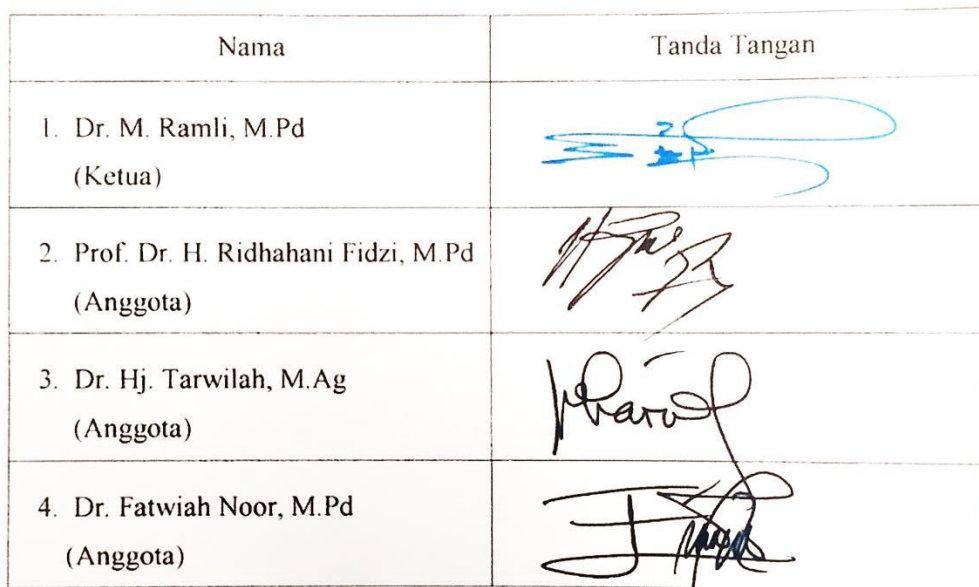 Nama
Tanda Tangan
1. Dr. M. Ramli, M.Pd
(Ketua)
2. Prof. Dr. H. Ridhahani Fidzi, M.Pd
(Anggota)
3. Dr. Hj. Tarwilah, M.Ag
(Anggota)
4. Dr. Fatwiah Noor, M.Pd
(Anggota)